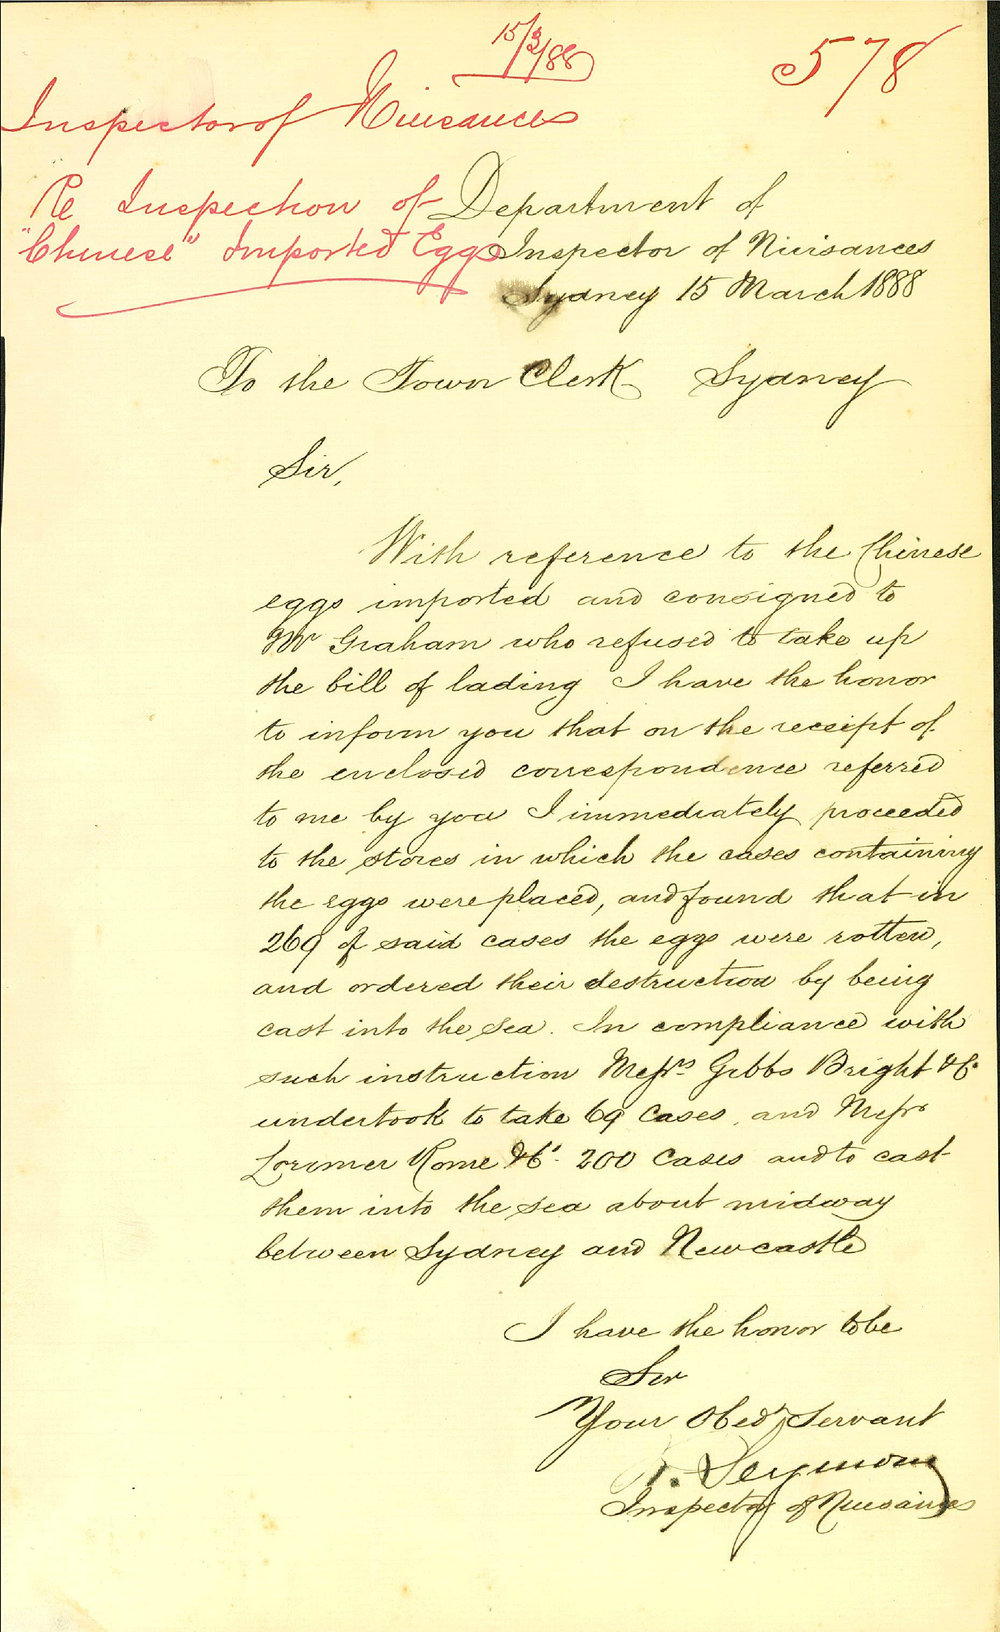 15/3/88
578
Inspector of Nuisances
Re Inspection of
"Chinese" Imported Eggs
Department of
Inspector of Nuisances
Sydney 15 March 1888
To the Town Clerk Sydney
Sir,
With reference to the Chinese
eggs imported and consigned to
Mr Graham who refused to take up
the bill of lading I have the honor
to inform you that on the receipt of
the enclosed correspondence referred
to me by you I immediately proceeded
to the stores in which the cases containing
the eggs were placed, and found that in
269 of said cases the eggs were rotten,
and ordered their destruction by being
cast into the sea. In compliance with
such instruction Messrs Gibbs Bright & Co
undertook to take 69 Cases, and Messrs
Lorimer Rome & Co. 200 Cases and to cast
them into the sea about midway
between Sydney and Newcastle
I have the honor to be
Sir
Your Obedt Servant
R. Seymour
Inspector of Nuisances